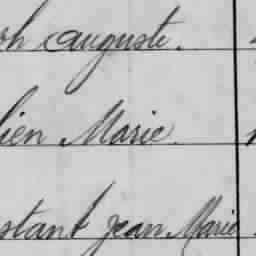 ph auguste.
lien Marie
stant Jean Marie